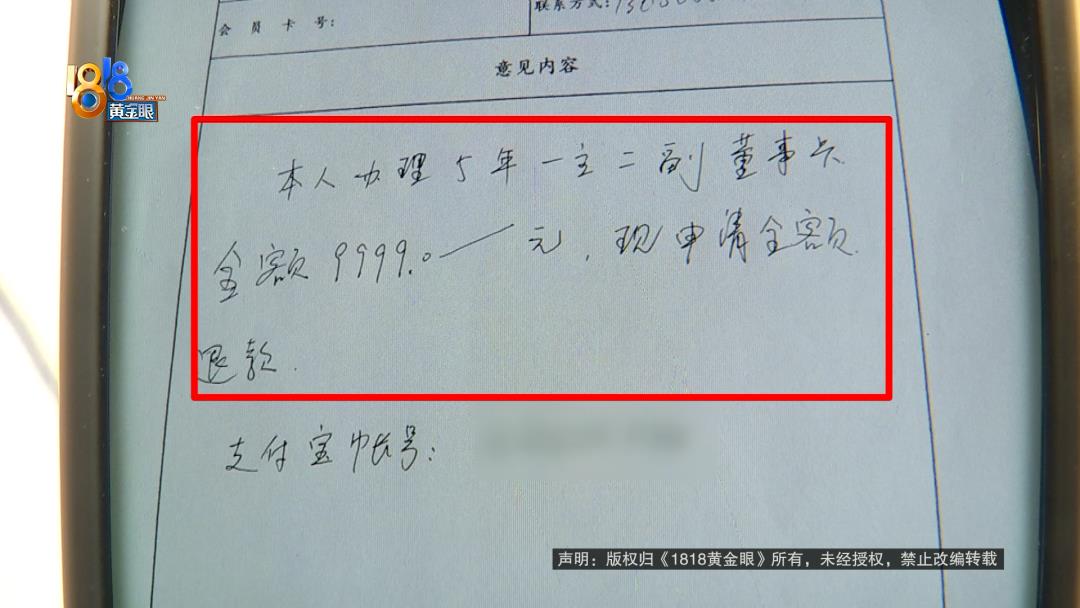 会员卡号：
联系方式：
意见内容
1818
HUANG JIN YAN
黄金眼
本人办理5年一主二副董事卡
金额9999.0 元，现申请全额
退款.
支付宝帐号：
声明：版权归《1818黄金眼》所有，未经授权，禁止改编转载